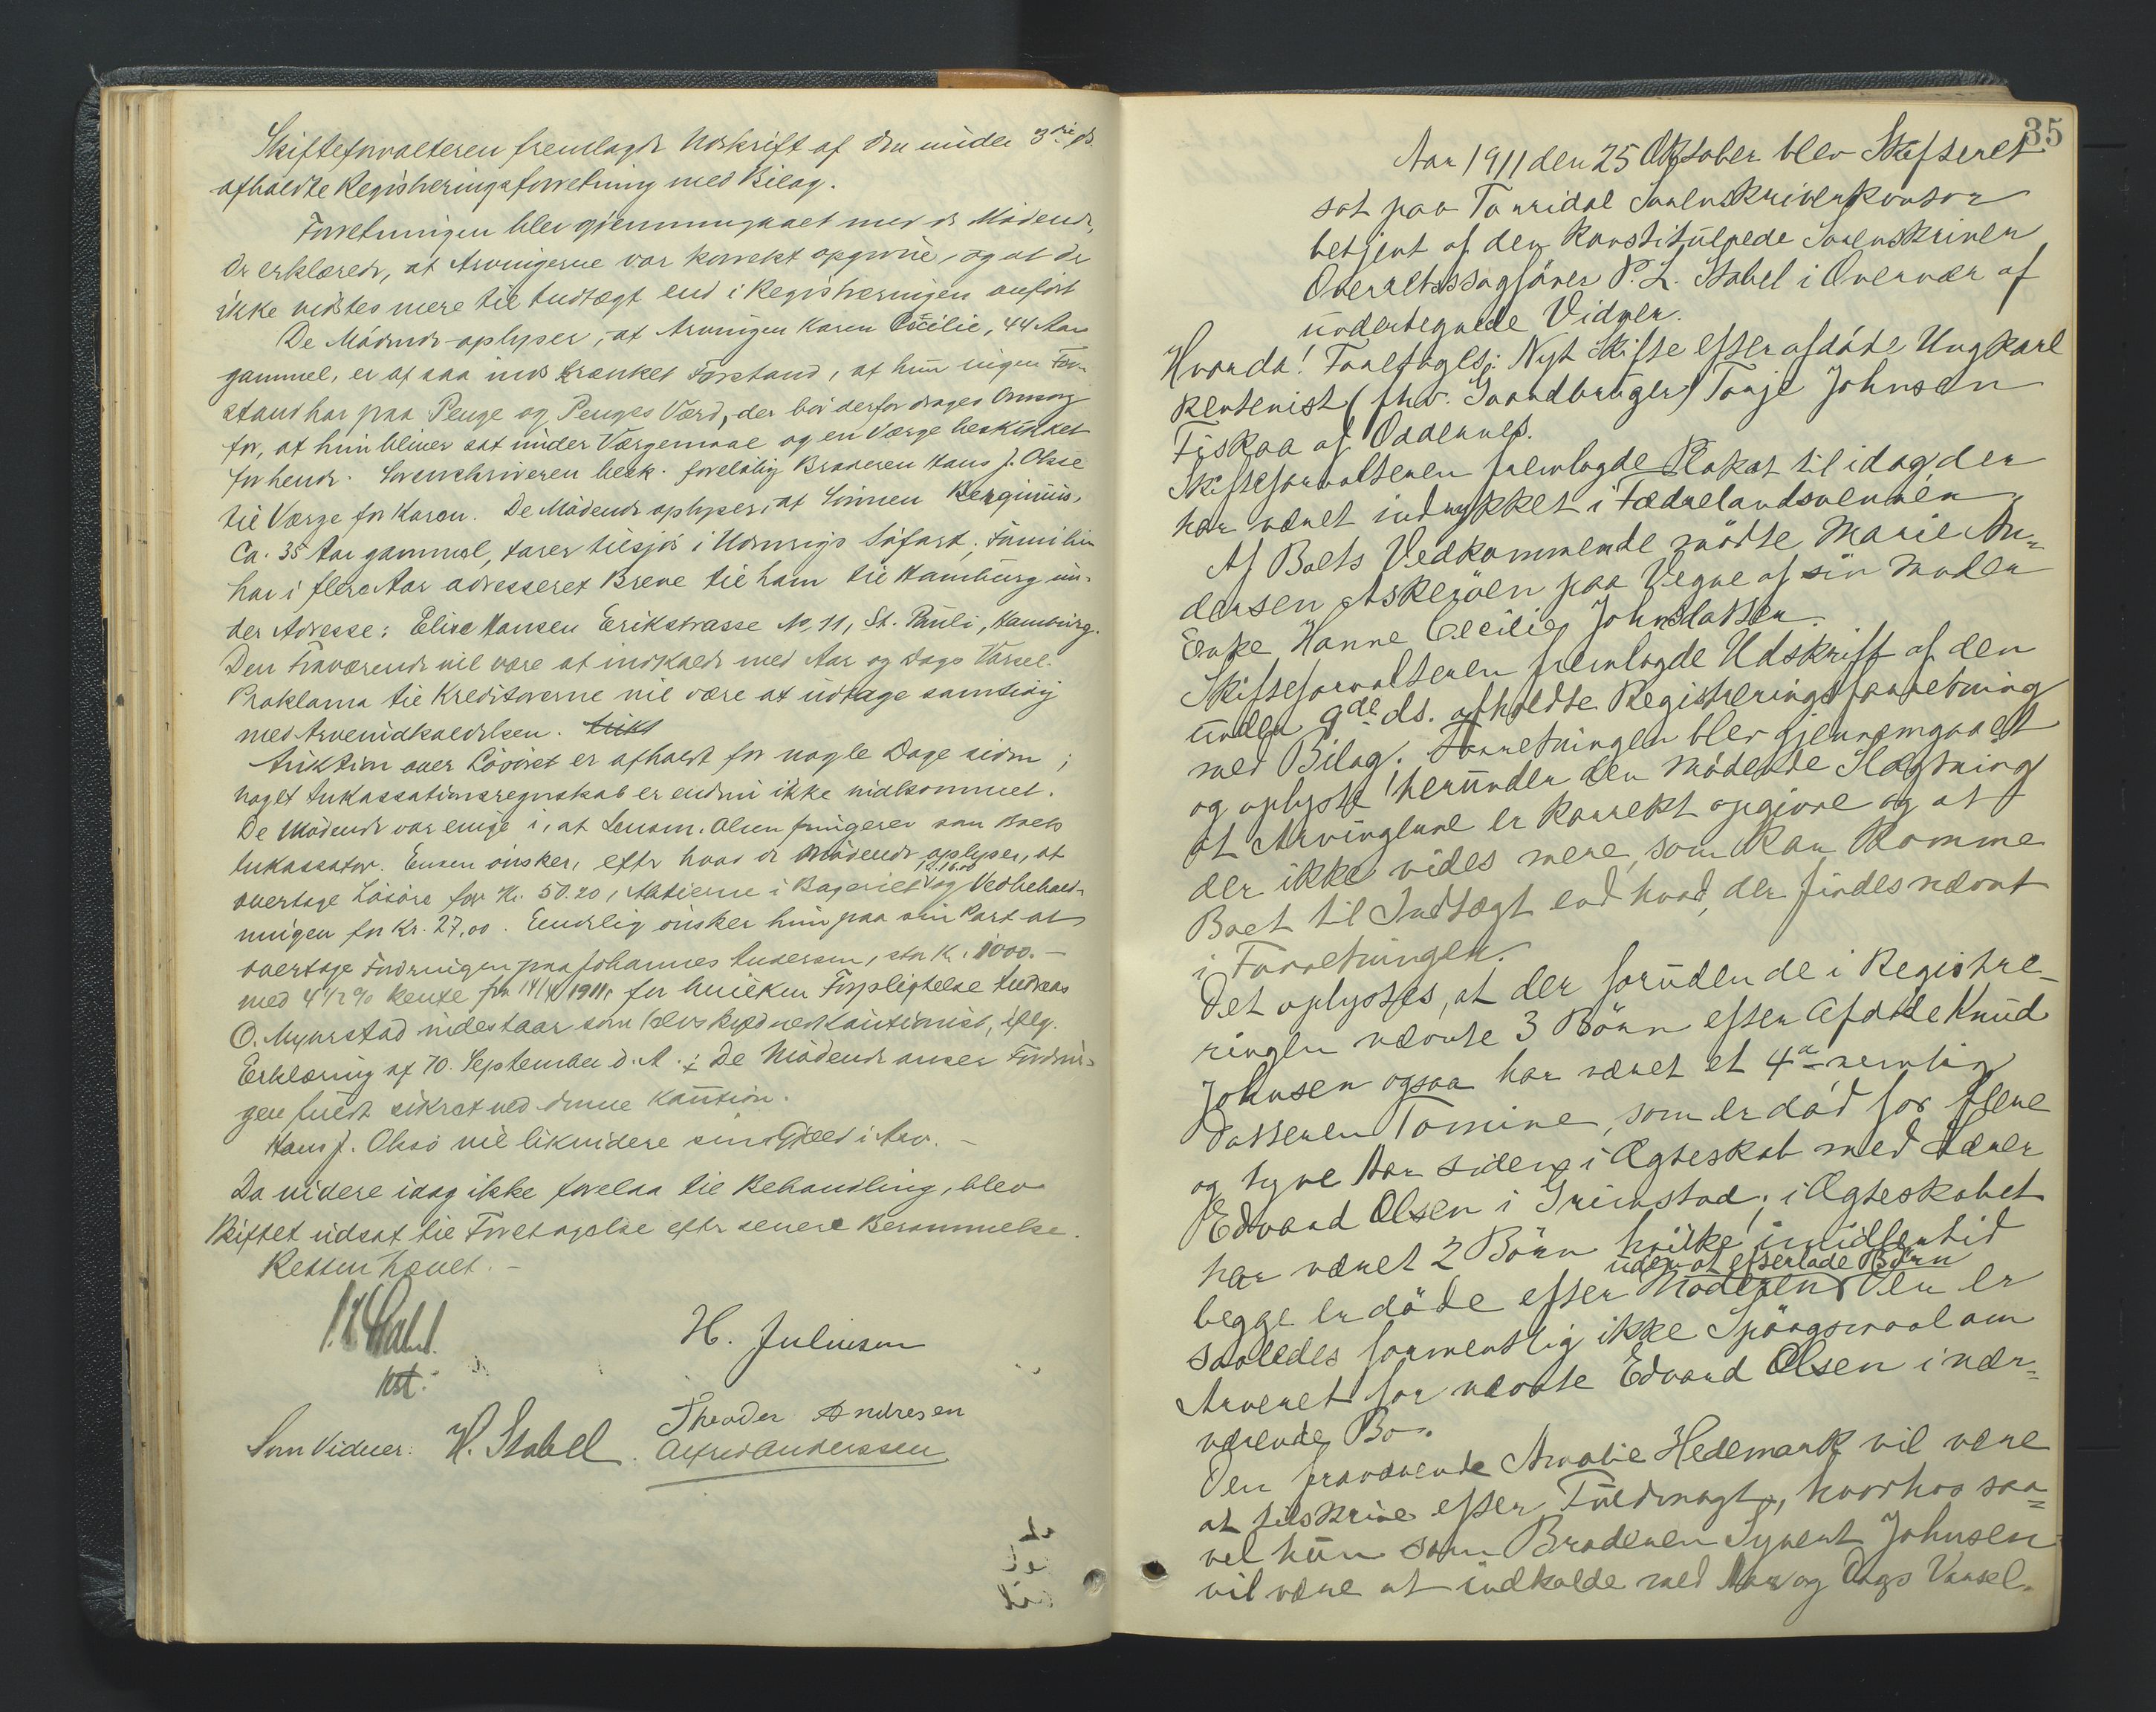 Skifteforvalteren fremlagde Udskrift af den under 3die ds.
afholdte Registreringsforretning med Bilag.
Forretningen blev gjennemgaaet med de Mödende,
de erklærede, at Arvingerne var korrekt opgivne, og at de
ikke vidstes mere til Indtægt end i Registreringen anfört
De Mödende oplyser, at Arvingen Karen Cecilie, 44 Aar
gammel, er af saa indskrænket Forstand, at hun ingen For-
stand har paa Penge og Penges Værd, der bör derfor drages Omsorg
for, at hun bliver sat under Værgemaal og en Værge beskikket
for hende. Sorenskriveren besk. forelöbig Broderen Hans J. Olsse
til Værge for Karen. De Mödende oplyser, at Sönnen Berginius,
Ca. 35 Aar gammel, farer tilsjös i Udenrigs Söfart. Familien
har i flere Aar adresseret Breve til ham til Hamburg un-
der Adresse: Elise Hansen Erikstrasse No 11, St. Pauli, Hamburg.
Den Fraværende vil være at indkalde med Aar og Dags Varsel.
Proklama til Kreditorerne vil være at udtage samtidig
med Arveindkaldelsen.
Auktion over Lösöret er afholdt for nogle Dage siden;
noget Inkassationsregnskab er endnu ikke indkommet.
De Mödende var enige i, at Lensm. Olsen fungerer som Boets
Inkassator. Enken önsker, efter hvad de Mödende oplyser, at
overtage Lösöre for Kr. 50.20, Aktierne i Bageriet og Vedbehold-
ningen for Kr. 27,00. Endelig önsker hun paa sin Part at
overtage Fordringen paa Johannes Andersen, stor Kr. 1000.-
med 4 1/2 % Rente fra 14/4 1911, for hvilken Forpligtelse Andreas
O. Myhrstad indestaar som Selvskyldnerkautionist, iflg.
Erklæring af 70. September d. A. De Mödende anser Fordrin-
gen fuldt sikret ved denne Kaution.
Hans J. Olssö vil likvidere sin Gjæld i Arv. -
Da videre idag ikke forelaa til Behandling, blev
Skiftet udsat til Foretagelse efter senere Berammelse.
Retten hævet. -
P. L. Stabel.
kst.
H. Juliusen
Theodor Andresen
Som Vidner: H. Stabel. Alfred Anderssen
35
Aar 1911 den 25 Oktober blev Skifteret
sat paa Torridal Sorenskriverkontor
betjent af den konstituerede Sorenskriver
Overretssagförer P. L. Stabel i Overvær af
undertegnede Vidner.
Hvorda! Foretoges: Nyt Skifte efter afdöde Ungkarl
Rentenist (fhv. Gaardbruger) Tarje Johnsen
Fiskaa af Oddernes.
Skifteforvalteren fremlagde Plakat til idag der
har været indrykket i Fædrelandsvennen.
Af Boets Vedkommende mödte Marie An-
dersen Askeröen paa Vegne af sin Moder
Enke Hanne Cecilie Johnsdatter.
Skifteforvalteren fremlagde Udskrift af den
under 9de ds. afholdte Registreringsforretning
med Bilag. Forretningen blev gjennemgaaet
og oplyste herunder den Mödende Slægtning
at Arvingerne er korrekt opgivne og at
der ikke vides mere, som kan komme
Boet til Indtægt end hvad der findes nævnt
i Forretningen.
Det oplystes, at der foruden de i Registre-
ringen nævnte 3 Börn efter afdöde Knud
Johnsen ogsaa har været et 4de nemlig
Datteren Tomine, som er död for flere
og tyve Aar siden i Ægteskab med Lærer
Edvard Olsen i Grimstad; i Ægteskabet
har været 2 Börn hvilke imidlertid
uden at efterlade Börn
begge er döde efter Moderen. Der er
saaledes formentlig ikke Spörgsmaal om
Arveret for nævnte Edvard Olsen i nær-
værende Bo.
Den fraværende Amalie Hedemark vil være
at tilskrive efter Fuldmagt, hvorhos saa-
vel hun som Broderen Syvert Johnsen
vil være at indkalde med Aar og Dags Varsel.